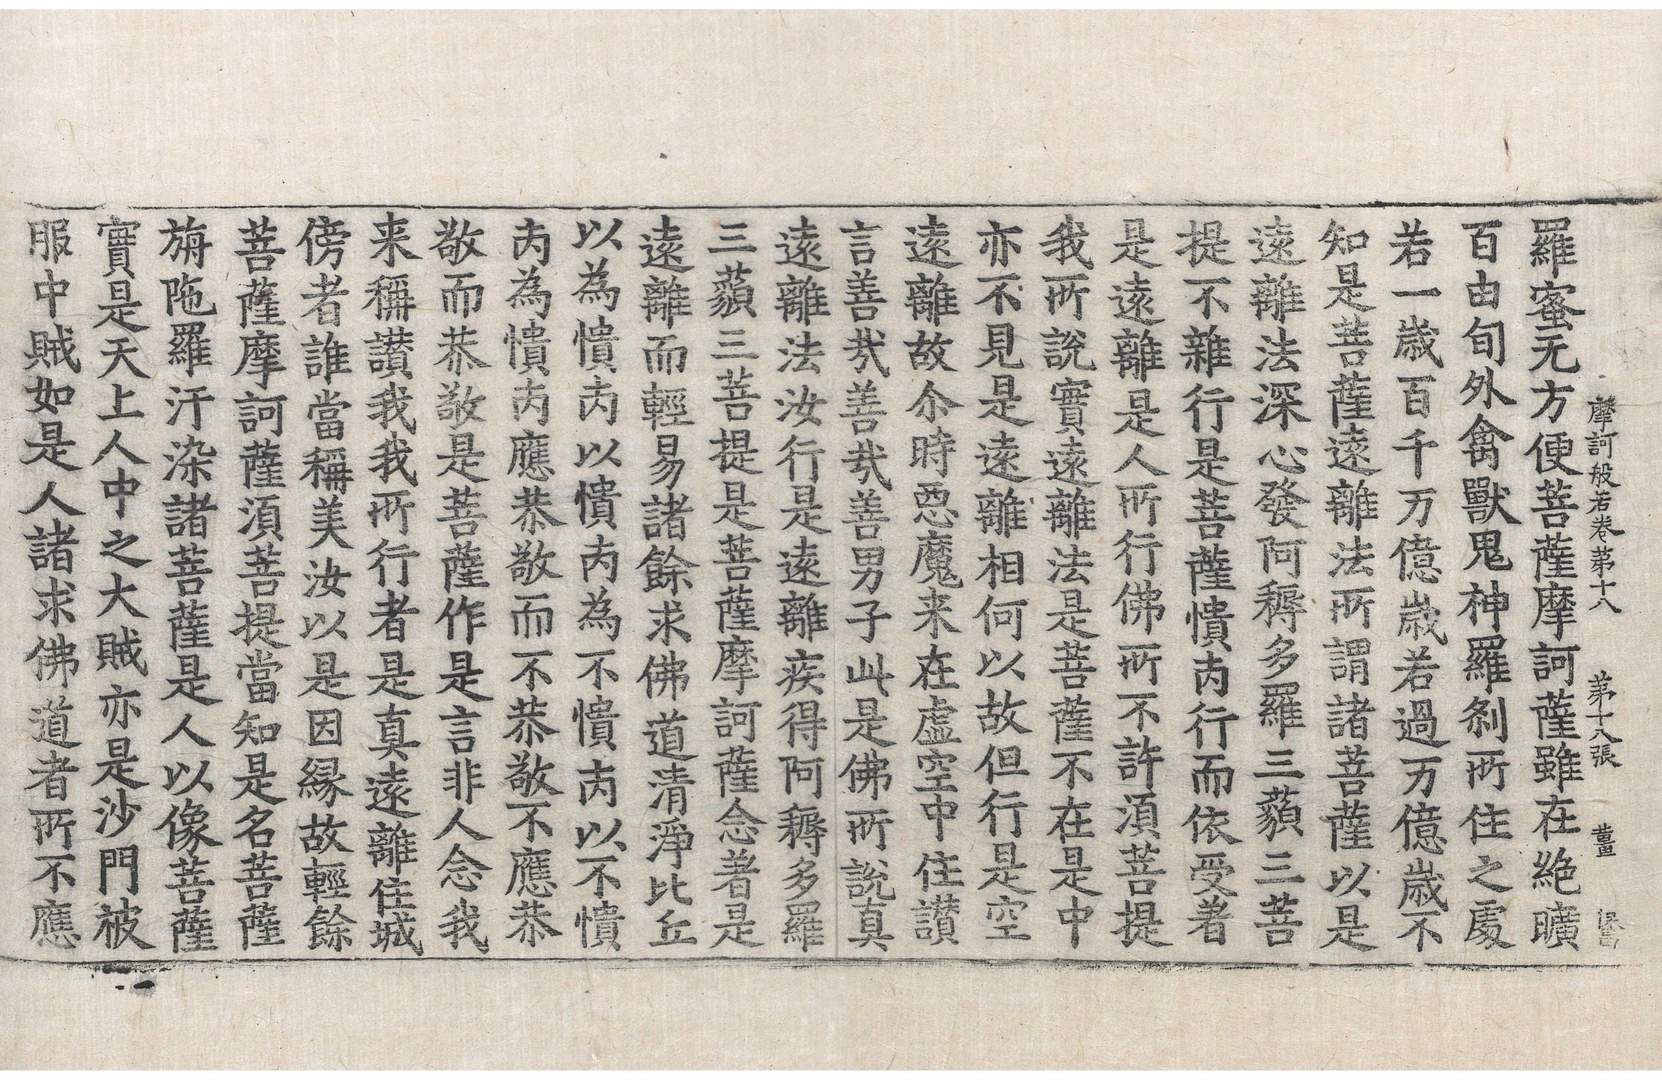 摩訶般若卷苐十八　苐十八張　畫
羅蜜无方便菩薩摩訶薩雖在絶曠
百由旬外禽獸鬼神羅剎所住之處
若一歲百千万億歲若過万億歲不
知是菩薩遠離法所謂諸菩薩以是
遠離法深心發阿耨多羅三藐三菩
提不雜行是菩薩憒丙行而依受著
是遠離是人所行佛所不許須菩提
我所說實遠離法是菩薩不在是中
亦不見是遠離相何以故但行是空
遠離故尒時惡魔来在虛空中住讃
言善哉善哉善男子此是佛所說真
遠離法汝行是遠離疾得阿耨多羅
三藐三菩提是菩薩摩訶薩念著是
遠離而輕易諸餘求佛道清淨比丘
以為憒丙以憒丙為不憒丙以不憒
丙為憒丙應恭敬而不恭敬不應恭
敬而恭敬是菩薩作是言非人念我
来稱讃我我所行者是真遠離住城
傍者誰當稱美汝以是因緣故輕餘
菩薩摩訶薩須菩提當知是名菩薩
旃陁羅汙染諸菩薩是人以像菩薩
實是天上人中之大賊亦是沙門被
服中賊如是人諸求佛道者所不應